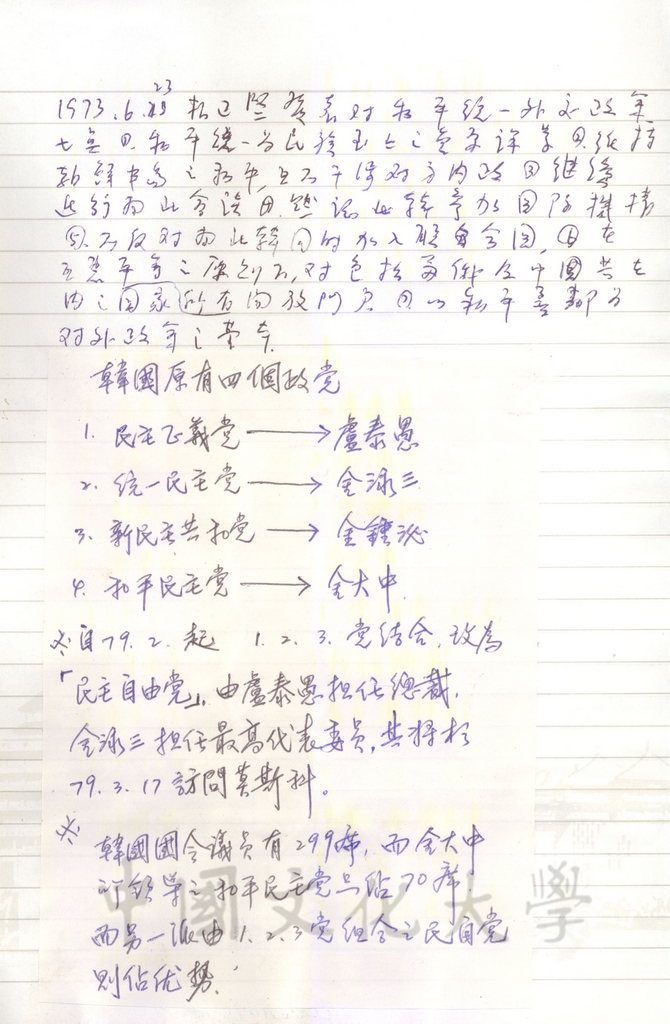 1973.6.23 朴正熙發表對和平統一外交政策
七点 ㊀和平統一為民族至上之
朝鮮半島之和平,互不干涉對方內政 ㊂繼續
進行南北會談 ㊃
㊄不反對南北韓同時加入聯合國,㊅在
互惠平等之原則下,對包括蘇俄及中國共在
內之國家所有開放門戶 ㊆以和平善鄰為
對外政策之基本
韓國原有四個政党
1. 民主正義党 → 盧泰愚
2. 統一民主党 → 金泳三
3. 新民主共和党 → 金鍾泌
4. 和平民主党 → 金大中
※自79.2.起 1.2.3.党結合,改為
「民主自由党」,由盧泰愚担任總裁,
金泳三担任最高代表委員,其將於
79.3.17訪問莫斯科。
※韓國國會議員有299席,而金大中
所領導之和平民主党只佔70席,
而另一派由1.2.3党組合之民自党
則佔优勢.
中國文化大學